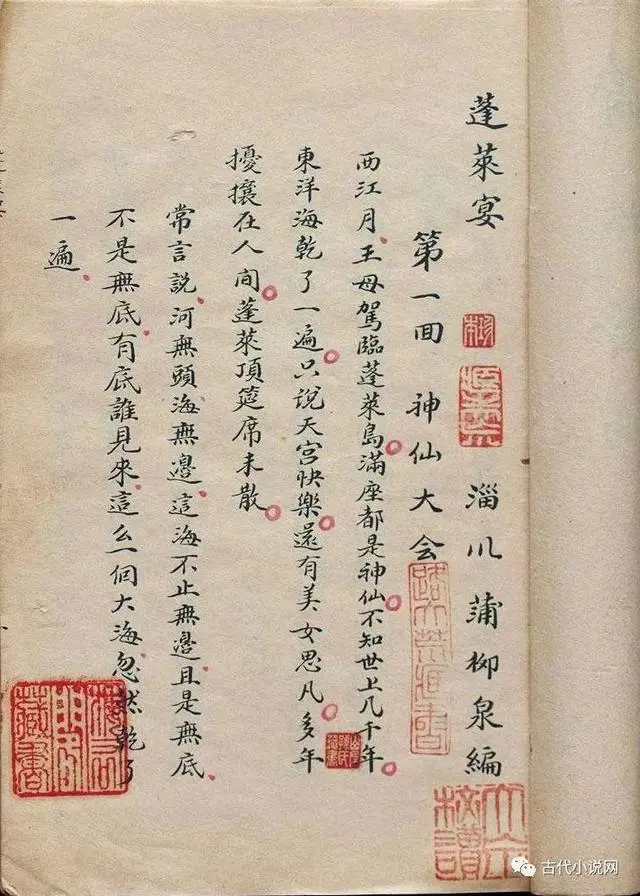 蓬萊宴 淄川蒲柳泉編
第一回 神仙大会
西江月王母駕臨蓬萊島滿座都是神仙不知世上几千年
東洋海乾了一遍只說天宮快樂還有美女思凡多年
擾攘在人间蓬萊頂筵席未散
常言說河無頭海無邊這海不止無邊且是無底
不是無底有底誰見來這么一個大海忽然乾了
一遍
藏書
古代小说网